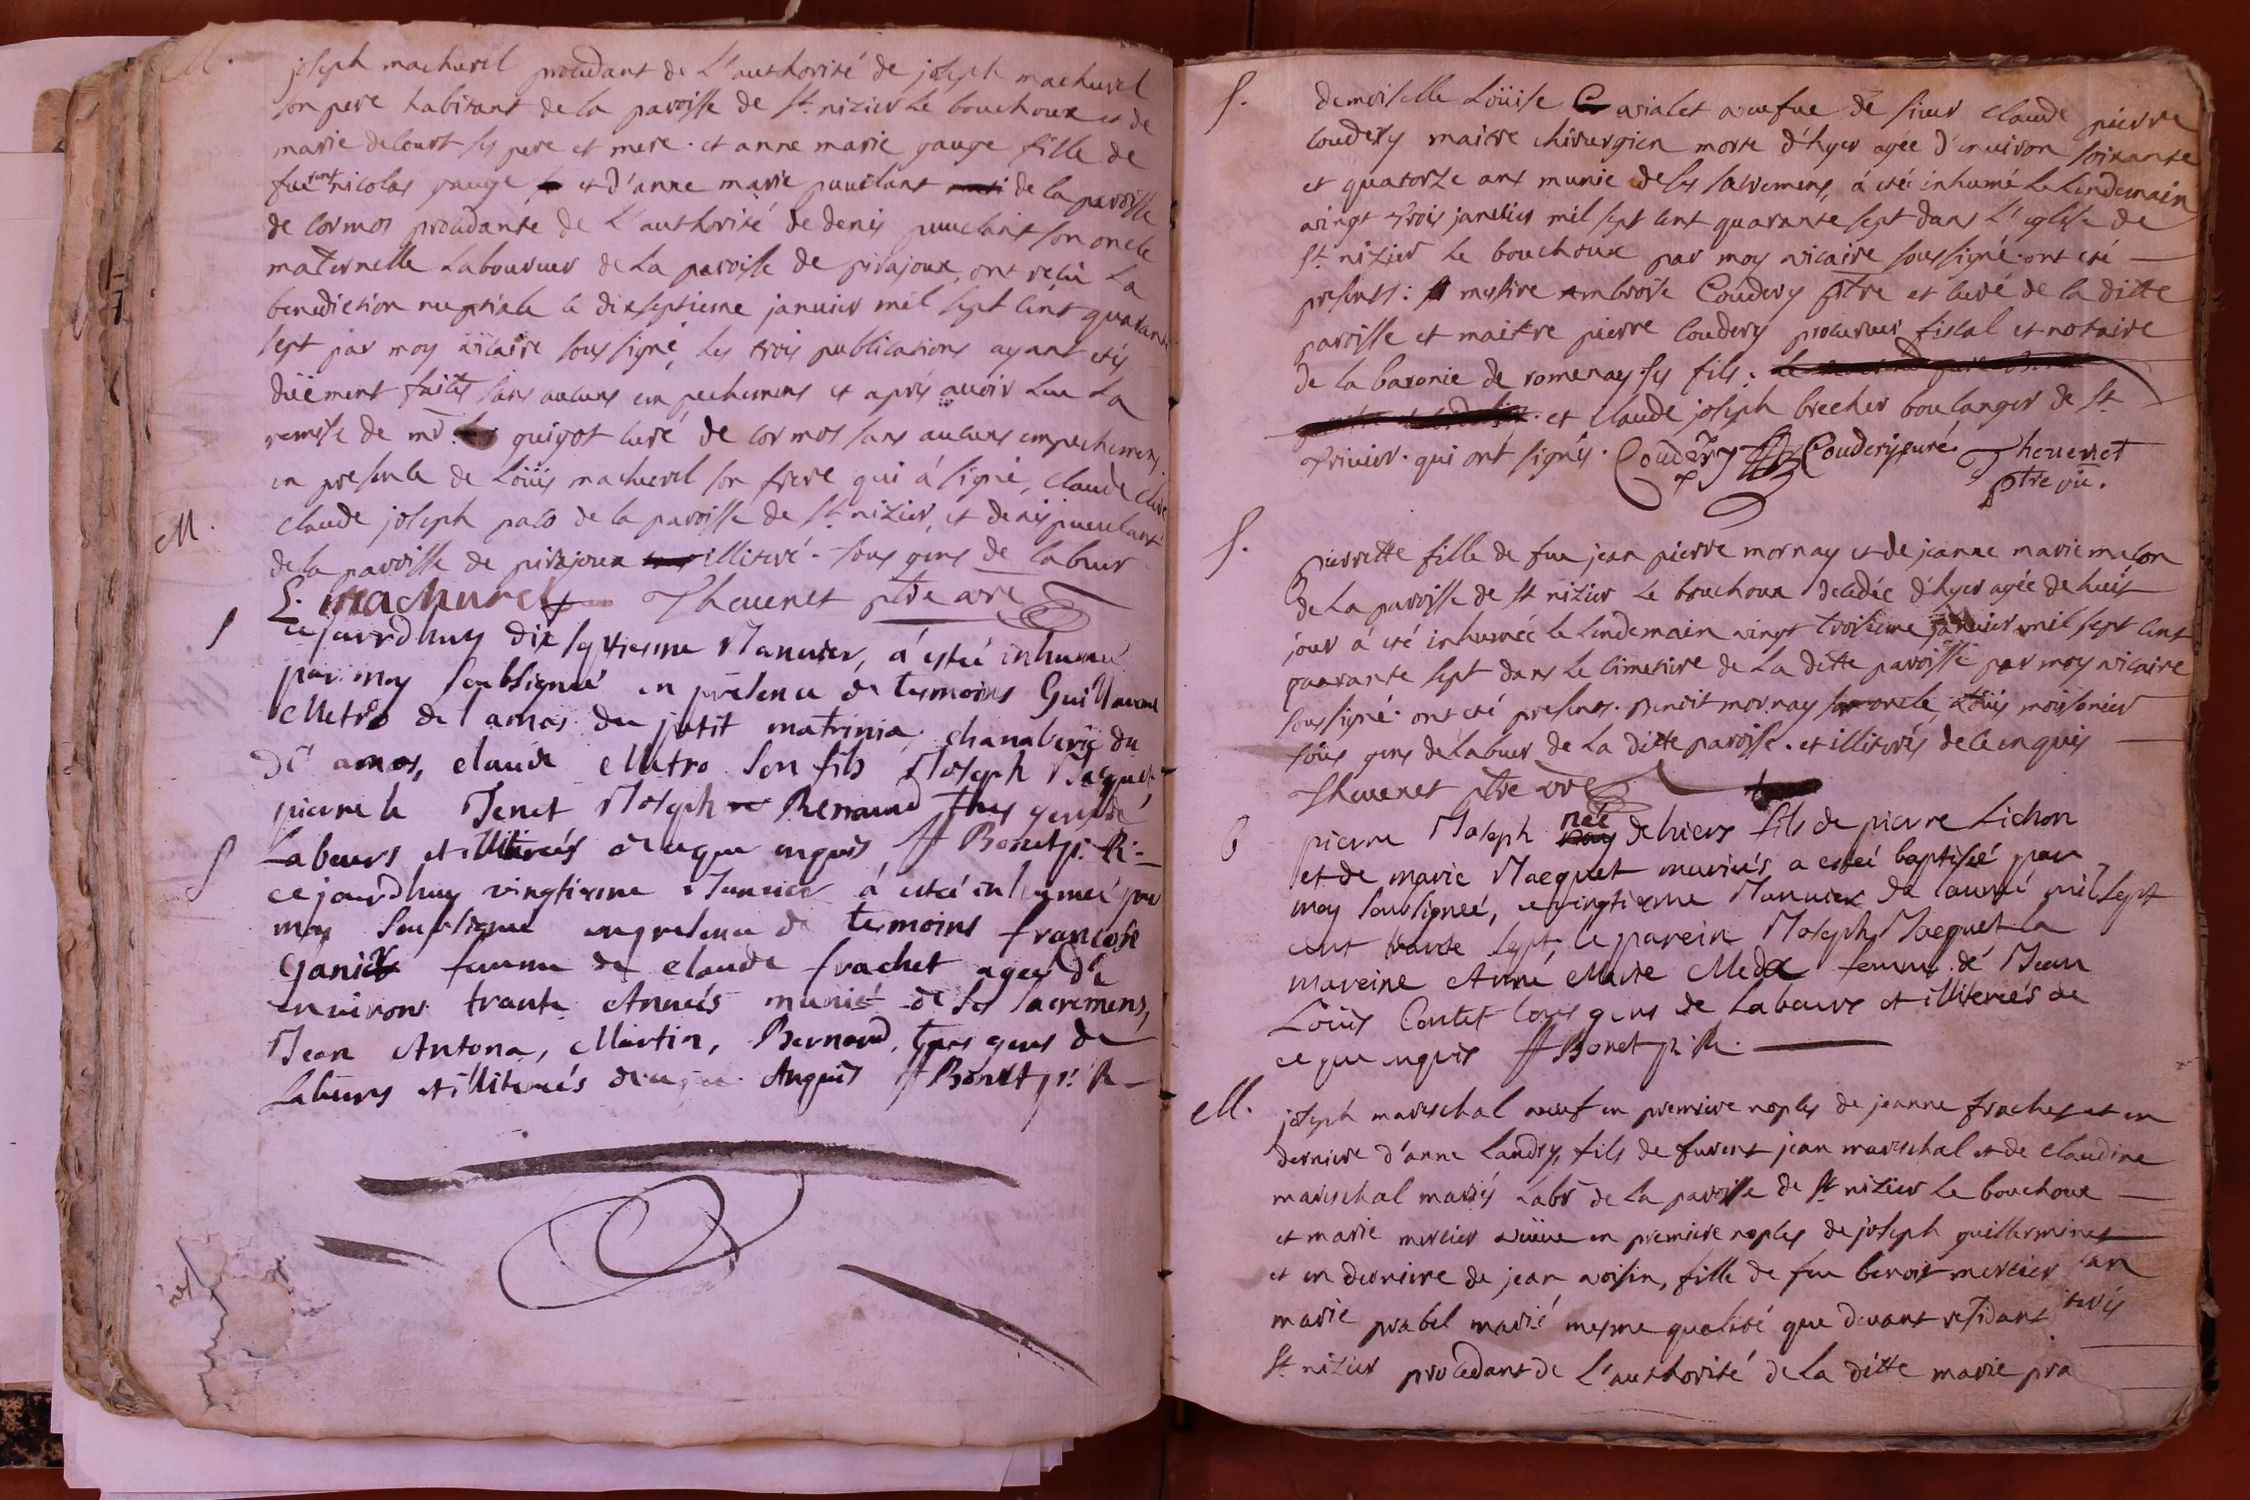 M.
joseph machurel procedant de L'authorité de joseph machurel
son pere habitant de la paroisse de St. nizier Le bouchoux et de
marie delcourt ses pere et mere. et anne marie gauge fille de
furent nicolas gauge et d'anne marie puuelant de la paroisse
de cormos procedante de L'authorité de denis puuelant son oncle
maternelle Laboureur de La paroisse de pirajoux, ont recû La
benediction nuptiale le dixseptieme janvier mil sept cent quarante
sept par moy vicaire soussigné, les trois publications ayant etés
düement faites sans aucuns empechemens et aprés avoir eue La
remise de mr. guigot curé de cormos sans aucuns empechemens.
en presence de Loüis machurel son frere qui á signé, claude
M.
claude joseph paco de la paroisse de St. nizier, et denis puuelant
de la paroisse de pirajoux illiteré. tous gens de Labeur
L. machurel Theuenet ptre vre
S
cejourdhuy dix septiesme Januier, á estée inhumé
par moy soubsigneé en présence de tesmoins Guillaume
Metro de l'amas du petit matrinia, chanaberie du
dt amas, claude Metro son fils Joseph Jacquet
pierre le Jenet Joseph Renaud tous gens de
S
Labeurs et illiterés de ce que enquis ff Bonet p. R.
cejourdhuy vingtiesme Januier á estée inhumeé par
moy soubsigneé en presence de tesmoins francoise
Ganiex femme de claude frachet ageé de
environs trante Anneés munié de ses sacremens,
Jean Antona, Martin, Bernard, tous gens de
Labeurs et illiterés Anquis ff Bonet p. R
S.
demoiselle Loüise Carialet veufue de sieur claude pierre
coudery maitre chirurgien morte d'hyer agée d'environ soixante
et quatorze ans munie de ses sacremens, á eté inhumé Le Lendemain
vingt trois janvier mil sept cent quarante sept dans L'eglise de
St. nizier Le bouchoux par moy vicaire soussigné. ont eté
presents: messire ambroise Coudery ptre et curé de la ditte
paroisse et maitre pierre coudery procureur fiscal et notaire
de la baronie de romenay. ses fils;
et claude joseph brecher boulanger de St
Trivier. qui ont signés. Coudery Couderycuré. Theuenet
ptre vic.
S.
pierrette fille de feu jean pierre mornay et de jeanne marie malon
de La paroisse de St nizier Le bouchoux decedée d'hyer agée de huit
jour á eté inhumée le Lendemain vingt troisieme janvier mil sept cent
quarante sept dans Le cimetiere de La ditte paroisse par moy vicaire
soussigné. ont eté presens. Benoit mornay son oncle, Loüis moissonier
tous gens de Labeur de La ditte paroisse. et illiterés de ce enquis
Theuenet ptre vre
B
pierre Joseph née dehiers fils de pierre Lichon
et de marie Jacquet mariés a esteé baptiseé par
moy soubsigneé, ce vingtiesme Januier de l'anneé mil sept
cent trante sept; le parein Joseph Jacquet la
mareine Anne Marie Meda femme de Jean
Loüis Contet tous gens de Labeurs et illiterés de
ce que enquis ff Bonet p. R.
M.
joseph mareschal veuf en premiere noples de jeanne frachet et en
derniere d'anne Landry, fils de furent jean mareschal et de claudine
mareschal mariés Labr de La paroisse de St nizier Le bouchoux
et marie mercier veuue en premiere noples de joseph guillerminet
et en derniere de jean voisin, fille de feu benoit mercier
marie prabel marié mesme qualité que devant residant
St. nizier procedant de L'authorité de La ditte marie pra